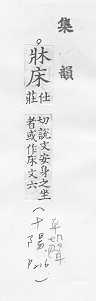 集韻
。牀床仕莊切說文安身之坐
者或作床文六
十陽